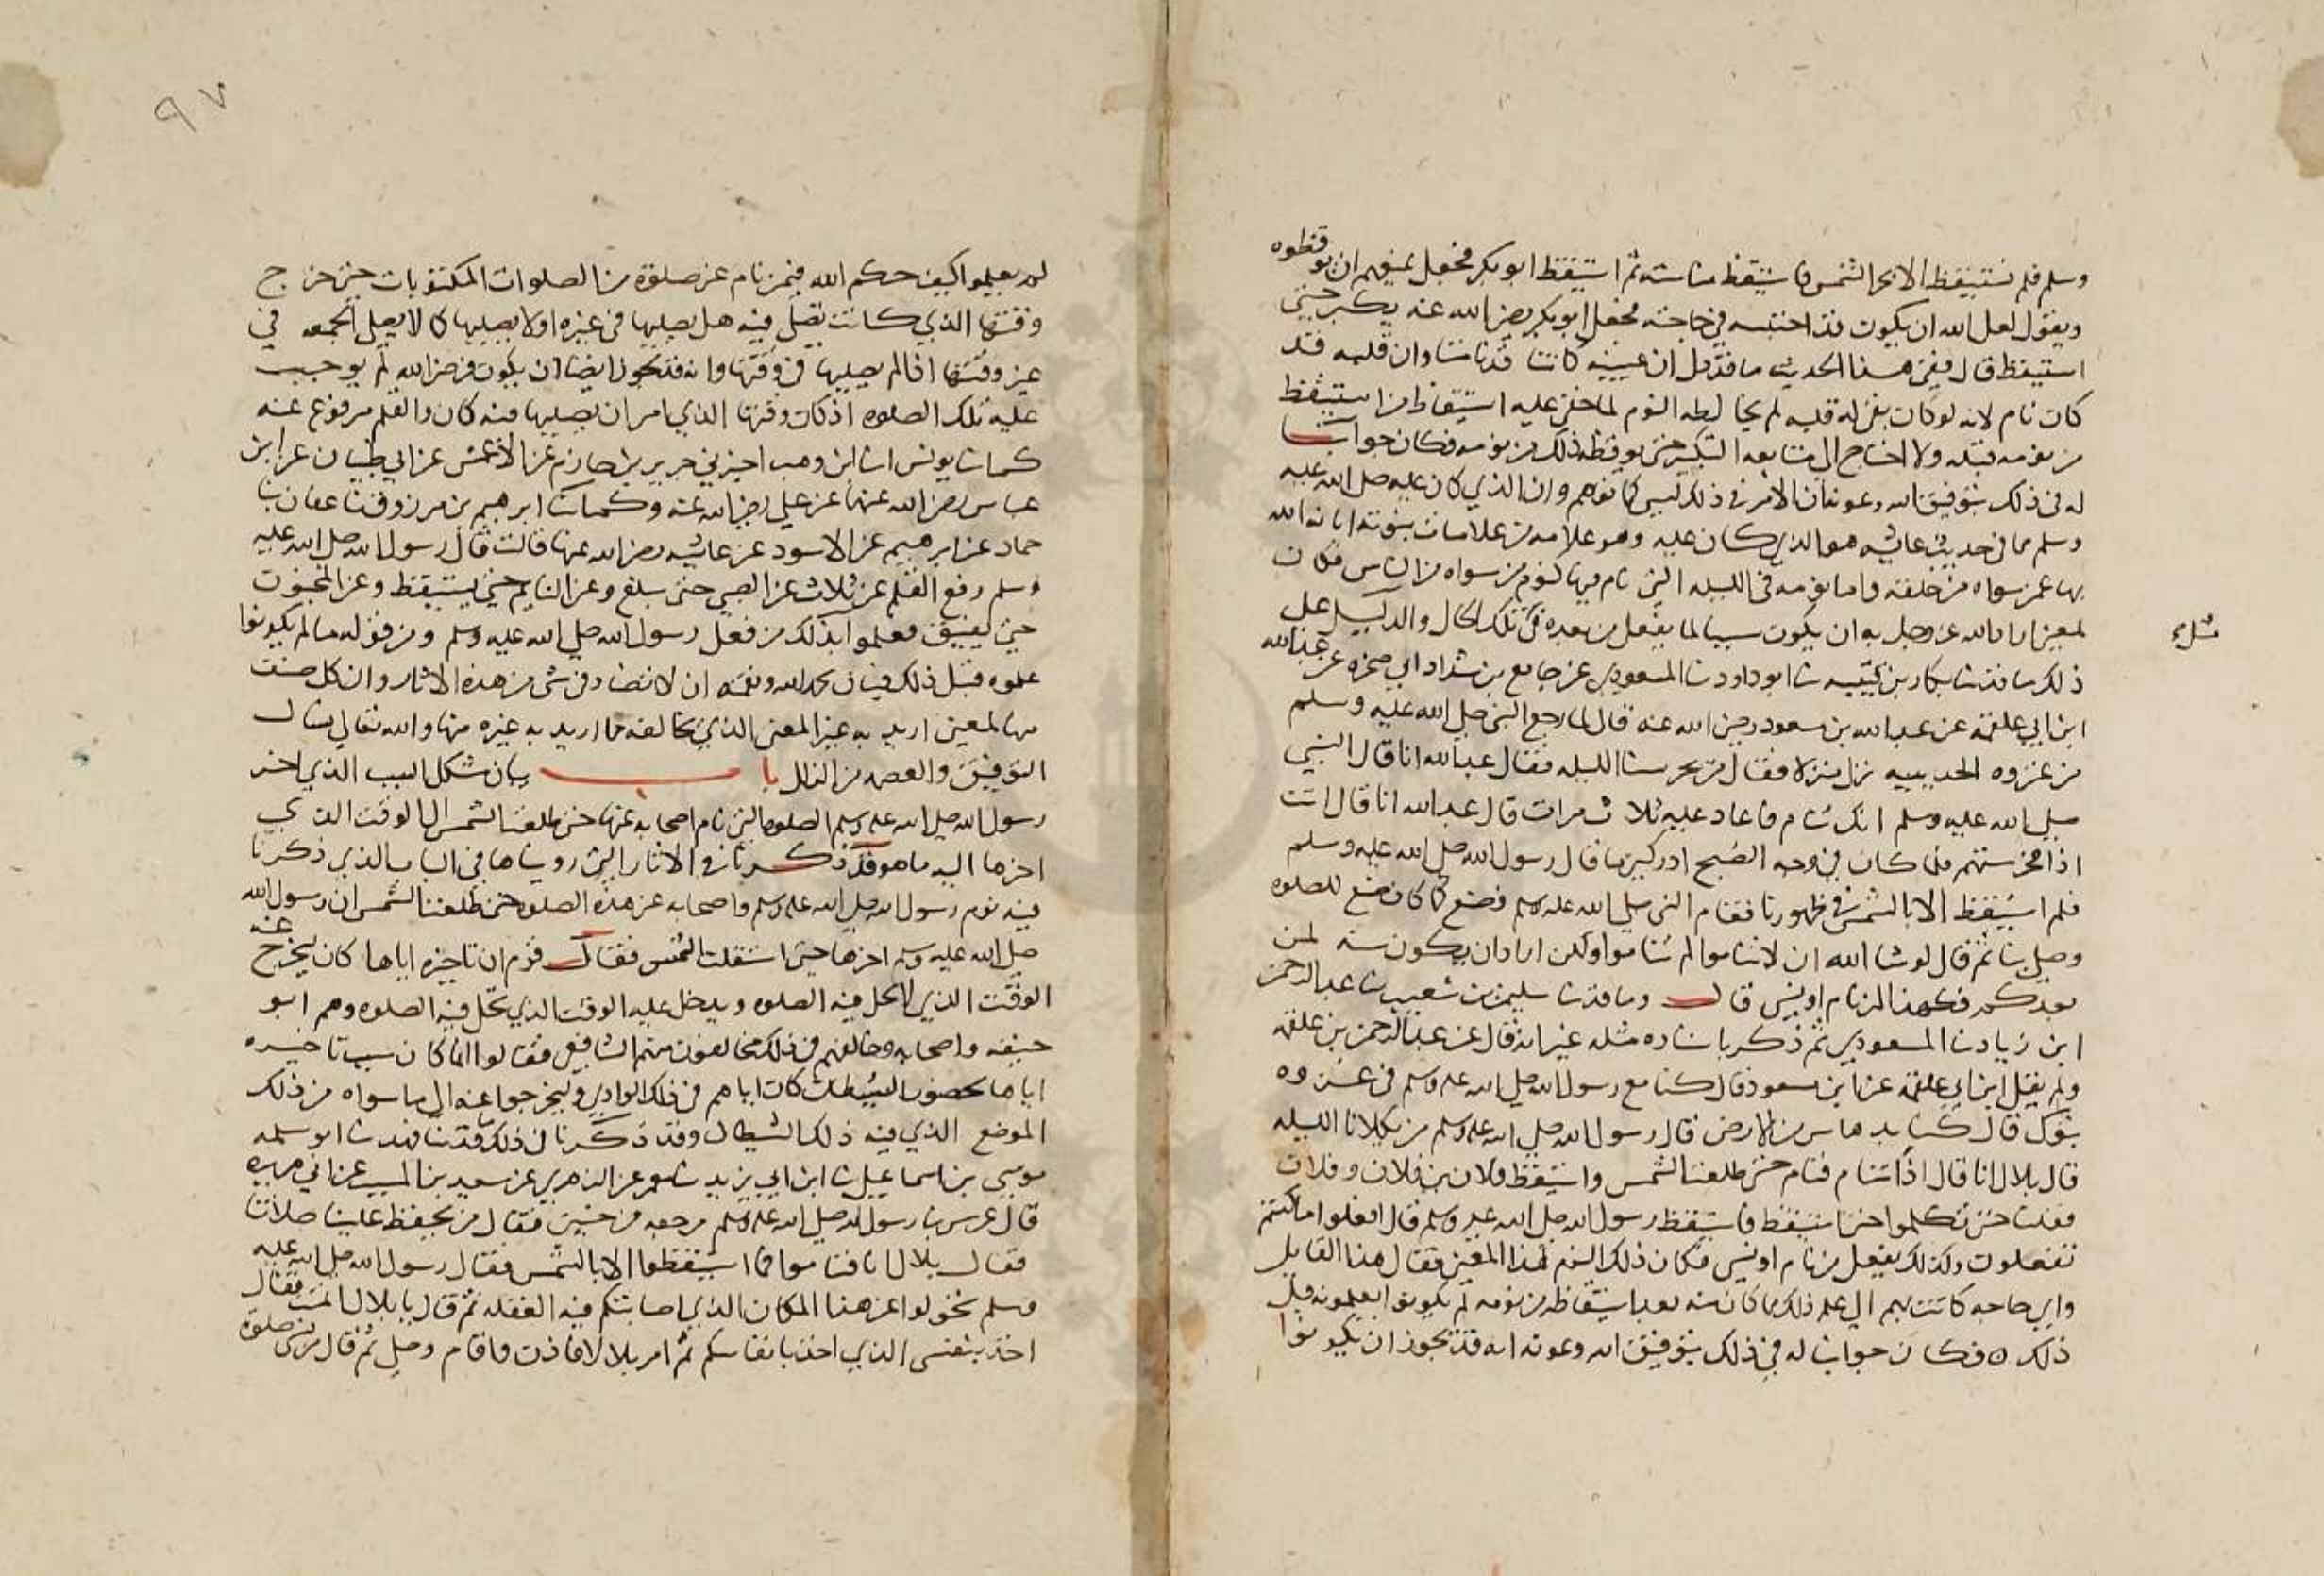 وسلم فلم نستيقظ الا بحر الشمس فاستيقظ منا ستة ثم استيقظ ابو بكر فجعل يمنعهم ان يوقظوه
ويقول لعل الله ان يكون قد احتبسه في حاجته فجعل ابو بكر رضي الله عنه يكبر حتى
استيقظ قال ففي هذا الحديث ما قد دل ان عينيه كانتا قد نامتا وان قلبه قد
كان نام لانه لو كان بقي له قلبه لم يخالطه النوم لما خفي عليه استيقاظ من استيقظ
من نومه قبله ولا احتاج الى متابعة التكبير حتى يوقظه ذلك من نومه فكان جوابنا
له في ذلك بتوفيق الله وعونه ان الامر في ذلك ليس كما توهم وان الذي كان عليه صلى الله عليه
وسلم مما في حديث عائشة هو الذي كان عليه وهو علامة من علامات نبوته ابانه الله
بها عمن سواه من خلقه واما نومه في الليلة التي نام فيها كنوم من سواه من الناس فكان
لمعنى اراد الله عز وجل به ان يكون سببا لما يفعل من بعده في تلك الحال والدليل على
مثل
ذلك ما قد حدثنا بكار بن قتيبة ثنا ابو داود ثنا المسعودي عن جامع بن شداد ابي صخرة عن عبد الله
ابن ابي علقمة عن عبد الله بن مسعود رضي الله عنه قال لما رجع النبي صلى الله عليه وسلم
من غزوه الحديبية نزل منزلا فقال من يحرسنا الليلة فقال عبد الله انا قال النبي
صلى الله عليه وسلم انك تنام فاعاد عليه ثلاث مرات قال عبد الله انا قال انت
اذا فحرستهم فلما كان في وجه الصبح ادركني ما قال رسول الله صلى الله عليه وسلم
فلم استيقظ الا بالشمس في ظهورنا فقام النبي صلى الله عليه وسلم فصنع كما كان يصنع للصلوه
وصلى بنا ثم قال لو شا الله ان لا تناموا لم تناموا ولكن اراد ان يكون سنة لمن
بعدكم فهكذا لمن نام او نسي قال وما قد ثنا سليمن بن شعيب ثنا عبد الرحمن
ابن زياد ثنا المسعودي ثم ذكر باسناده مثله غير انه قال عن عبد الرحمن بن علقمه
ولم يقل ابن ابي علقمة عن ابن مسعود قال كنا مع رسول الله صلى الله عليه وسلم في غزوه
تبوك قال كنا بدهاس من الارض قال رسول الله صلى الله عليه وسلم من يكلانا الليله
قال بلال انا قال اذا تنام فنام حتى طلعت الشمس واستيقظ فلان بن فلان وفلان
فقلنا حتى تكلموا حتى استيقظ فاستيقظ رسول الله صلى الله عليه وسلم قال افعلوا ما كنتم
تفعلون وكذلك يفعل من نام او نسي فكان ذلك النوم لهذا المعنى فقال هذا القايل
واي حاجه كانت بهم الى علم ذلك مما كان منه بعد استيقاظه من نومه لم يكونوا يعلمونه قبل
ذلك ٥ فكان جوابنا له في ذلك بتوفيق الله وعونه انه قد يجوز ان يكونوا
٩٧
لم يعلموا كيف حكم الله فيمن نام عن صلوة من الصلوات المكتوبات حتى خرج
وقتها الذي كانت تصلى فيه هل يصليها في غيره او لا يصليها كما لا يصلى الجمعه في
غير وقتها اذا لم يصليها في وقتها وانه قد يجوز ايضا ان يكون فرض الله لم يوجب
عليه تلك الصلوه اذ كان وقتها الذي امر ان يصليها فيه كان والقلم مرفوع عنه
كما ثنا يونس انا ابن وهب اخبرني جرير بن حازم عن الاعمش عن ابي ظبيان عن ابن
عباس رضي الله عنهما عن علي رضي الله عنه وكما ثنا ابرهيم بن مرزوق ثنا عفان ثنا
حماد عن ابرهيم عن الاسود عن عائشه رضي الله عنها قالت قال رسول الله صلى الله عليه
وسلم رفع القلم عن ثلاث عن الصبي حتى يبلغ وعن النايم حتى يستيقظ وعن المجنون
حتى يفيق فعلموا بذلك من فعل رسول الله صلى الله عليه وسلم ومن قوله ما لم يكونوا
علموه قبل ذلك فبان بحمد الله ونعمته ان لا تضاد في شي من هذه الاثار وان كل صنف
منها لمعنى اريد به غير المعنى الذي يخالفه مما اريد به غيره منها والله تعالى نسال
التوفيق والعصمه من الزلل باب بيان مشكل السبب الذي اخر
رسول الله صلى الله عليه وسلم الصلوه التي نام اصحابه عنها حتى طلعت الشمس الى الوقت الذي
اخرها اليه ما هو قد ذكرنا في الاثار التي رويناها في الباب الذي ذكرنا
فيه نوم رسول الله صلى الله عليه وسلم واصحابه عن هذه الصلوه حتى طلعت الشمس ان رسول الله
صلى الله عليه وسلم اخرها حتى استقلت الشمس فقال قوم ان تاخيره اياها كان ليخرج عنه
الوقت الذي لا تحل فيه الصلوه ويدخل عليه الوقت الذي تحل فيه الصلوه وهم ابو
حنيفه واصحابه وخالفهم في ذلك مخالفون منهم الشافعي فقالوا انما كان سبب تاخيره
اياها لحضور الشيطان كان اياهم في ذلك الوادي وليخرجوا عنه الى ما سواه من ذلك
الموضع الذي فيه ذلك الشيطان وقد ذكرنا في ذلك ما قد ثنا فهد ثنا ابو سلمه
موسى بن اسماعيل ثنا ابن ابي يزيد ثنا معمر عن الزهري عن سعيد بن المسيب عن ابي هريره
قال عرس بنا رسول الله صلى الله عليه وسلم مرجعه من حنين فقال من يحفظ علينا صلاتنا
فقال بلال انا فناموا فما استيقظوا الا بالشمس فقال رسول الله صلى الله عليه
وسلم تحولوا عن هذا المكان الذي اصابتكم فيه الغفله ثم قال يا بلال انمت فقال
اخذ بنفسي الذي اخذ بانفاسكم ثم امر بلالا فاذن واقام وصلى ثم قال من نسي صلوة